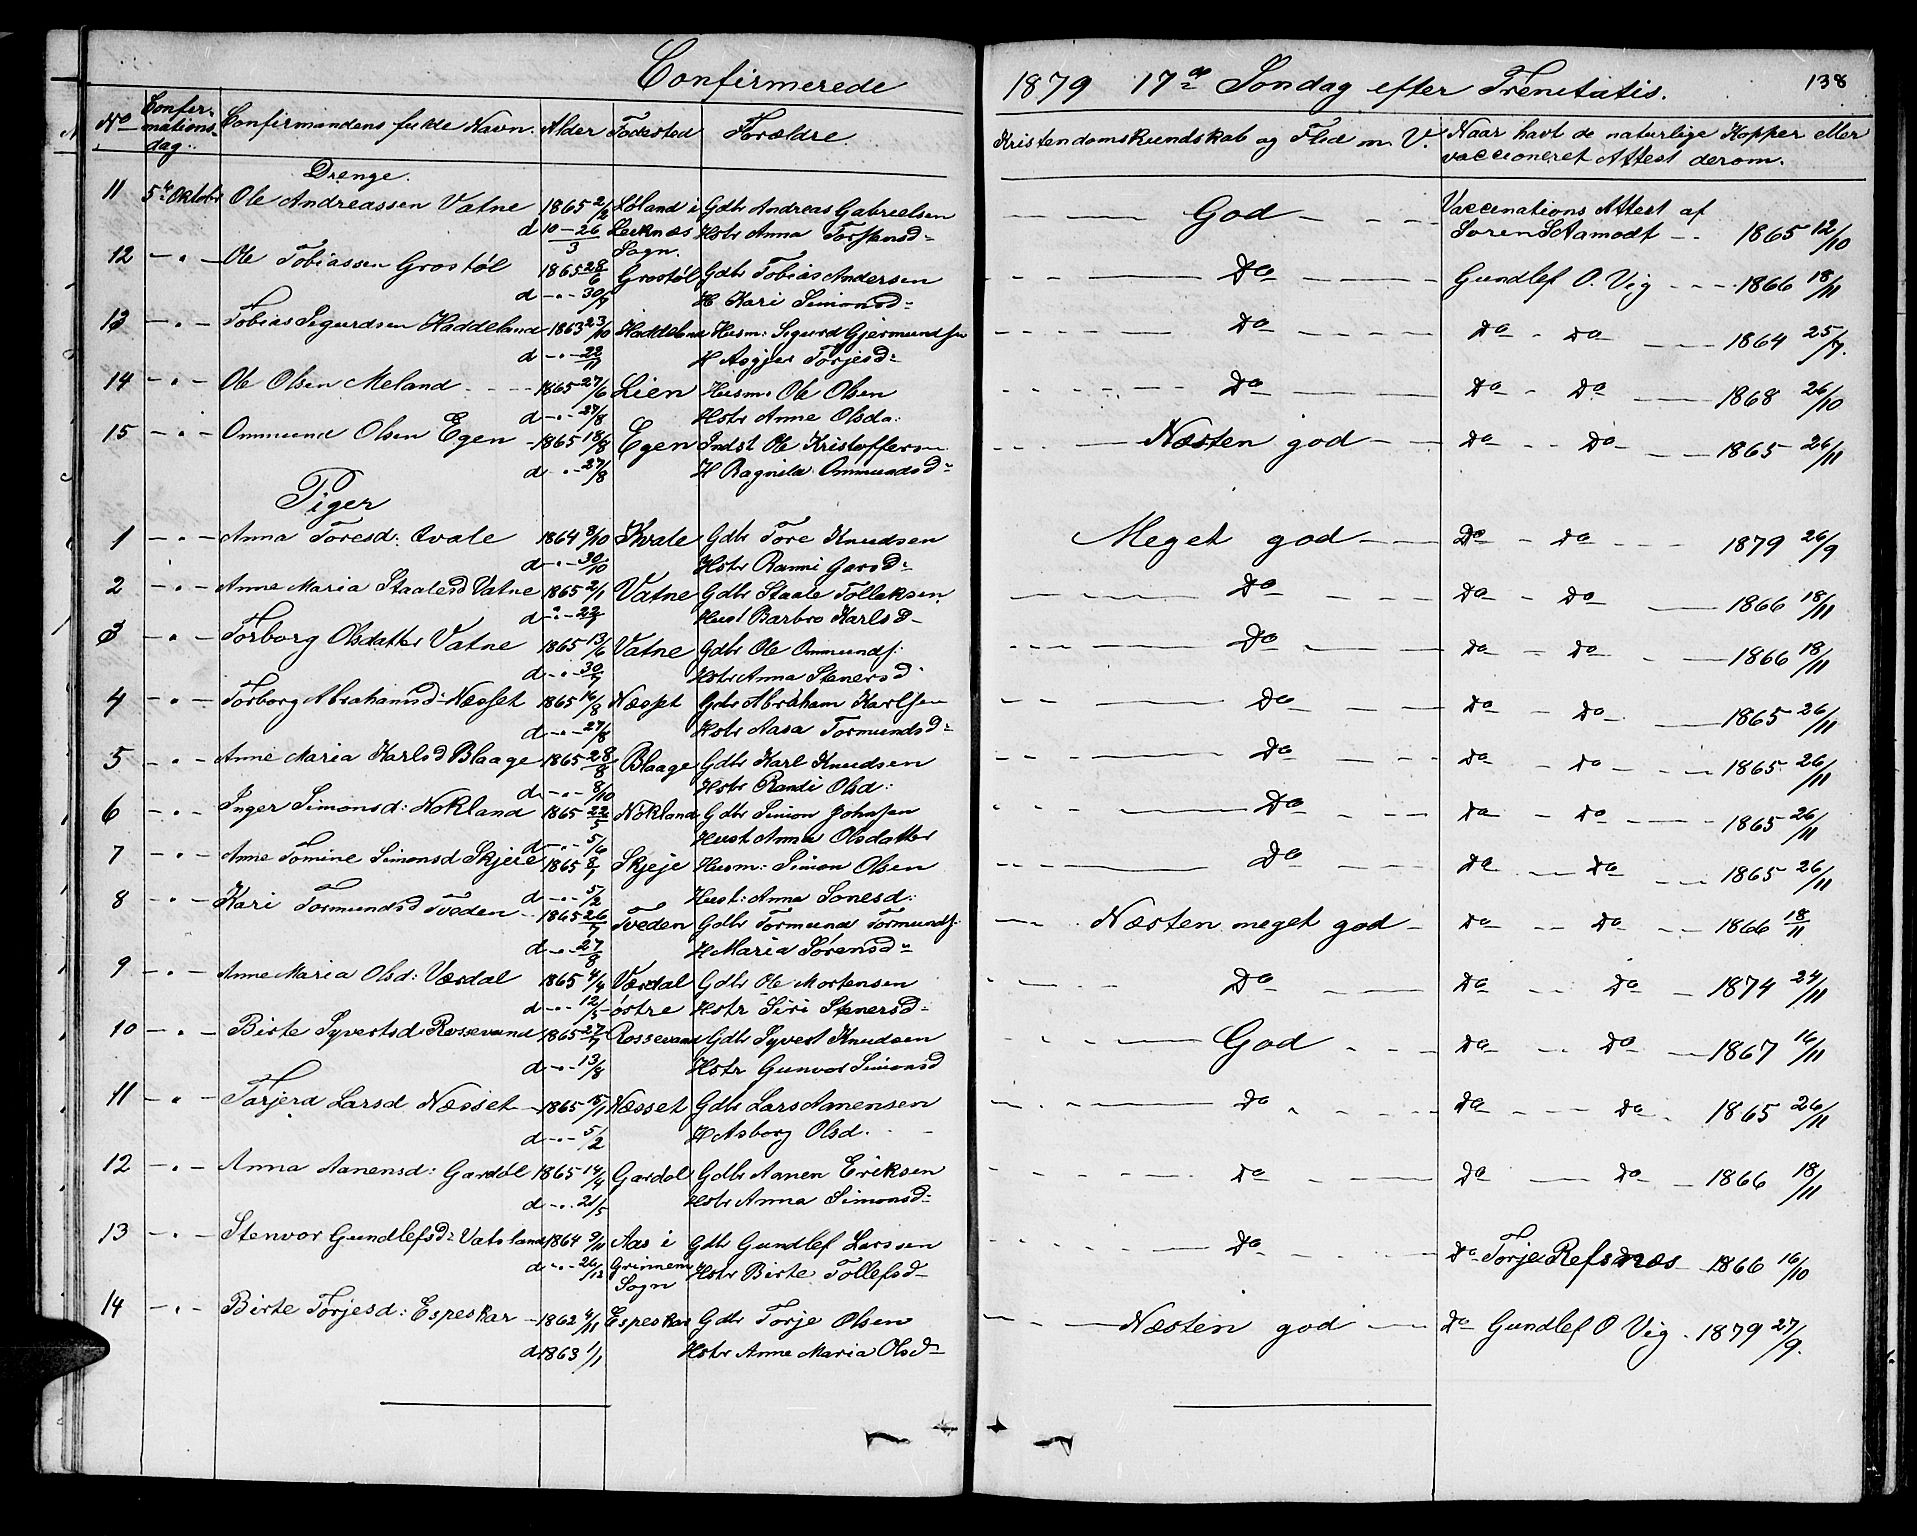 Confirmerede 1879 17de Søndag efter Trenitatis. 138
No Confirmationsdag: Confirmandens fulde Navn. Alder Fødested Forældre. Kristendomskundskab og Flid m. V. Naar havt de naturlige Kopper eller vaccioneret Attest derom.
Drenge.
11 5te Oktober Ole Andreassen Vatne 1865 2/2 Løland i Gdbr Andreas Gabrielsen — God — Vaccinations Attest af
d 10-26/3 Sogn. Hstr Anna Søren S Aamodt — 1865 12/10
12 — " — Ole Tobiassen Grostøl 1865 28/6 Grostøl Gdbr Tobias Andersen — Do — Gundlef O. Vig — 1866 18/11
d — " — 30/7 H Kari Simonsd:
13 — " — Tobias Sigurdsen Haddeland 1863 23/10 Haddeland Husm: Sigurd Gjermundsen — Do — Do - Do — 1864 25/7.
d — " — 22/11 H Asgjer Torjesd:
14 — " — Ole Olsen Meland — 1865 27/6 Lien Husm. Ole Olsen — Do — Do - Do — 1868 26/10
d — " — 27/8 Hstr Anne Olsda:
15 — " — Ommund Olsen Egen — 1865 18/8 Egen Indst Ole Kristoffersen — Næsten god — Do - Do — 1865 26/11
d — " — 27/8 H Ragnild Ommundsd:
Piger
1 — " — Anna Toresd: Qvale 1864 8/10 Kvale Gdbr Tore Knudsen Meget god — Do - Do — 1879 26/9
d — " — 30/10 Hstr Ranni
2 — " — Anne Maria Staalesd Vatne 1865 2/1 Vatne Gdbr Staale Tolleksen. — Do — Do - Do — 1866 18/11
d — " — 22/1 Hust Barbro Karlsd —
3 — " — Torborg Olsdatter Vatne 1865 13/6 Vatne Gdbr Ole Ommunds: — Do — Do - Do — 1866 18/11
d — " — 30/7 Hstr Anna Stenersd
4 — " — Torborg Abrahamsd: Næsset 1865 16/8 Næsset Gdbr Abraham Karlsen — Do — Do - Do — 1865 26/11
d — " — 27/8 Hstr Aasa Tormundsd:
5 — " — Anne Maria Karlsd Blaage 1865 28/8 Blaage Gdbr Karl Knudsen — Do — Do - Do — 1865 26/11
d — " — 8/10 Hstr Randi Olsd:
6 — " — Inger Simonsd: Nøkland 1865 22/5 Nøkland Gdbr Simon Johnsen — Do — Do - Do — 1865 26/11
d — " — 5/6 Hust Anna Olsdatter
7 — " — Anne Tomine Simonsd Skjeie 1865 8/1 Skjeje Husm: Simon Olsen — Do — Do - Do — 1865 26/11
d — " — 5/2 Hust: Anna Tonesd:
8 — " — Kari Tormundsd Tveden — 1865 26/7 Tveden Gdbr Tormund Tormunds: — Næsten meget god — Do - Do — 1866 18/11
d — " — 27/8 H Maria Sørensd:
9 — " — Anne Maria Olsd: Værdal 1865 4/4 Værdal Gdbr Ole Mortensen — Do — Do - Do — 1874 24/11
d — " — 12/5 østre Hstr Siri Stenersd:
10 — " — Birte Syvertsd Rossevand 1865 27/7 Rossevand Gdbr Syvert Knudsen — God — Do - Do — 1867 16/11
d — " — 13/8 Hstr Gunvor Simonsd
11 — " — Tarjerd Larsd Næsset — 1865 15/1 Næsset Gdbr Lars Aanensen — Do — Do - Do — 1865 26/11
d — " — 5/2 H Asborg Olsd.
12 — " — Anna Aanensd: Gardøl 1865 14/4 Gardøl Gdbr Aanen Eriksen — Do — Do - Do — 1866 18/11
d — " — 21/5 Hstr Anna Simonsd:
13 — " — Stenvor Gundlefsd: Vatsland 1864 9/11 Aas i Gdbr Gundlef Larsen — Do — Do Torje Refsnæs — 1866 16/10
d — " — 26/12 Grinnem Sogn Hstr Birte Tollefsd —
14 — " — Birte Torjesd: Espeskar — 1862 4/11 Espeskar Gdbr Torje Olsen — Næsten god — Do Gundlef O Vig. 1879 27/9.
d 1863 1/1 Hstr Anne Maria Olsd: